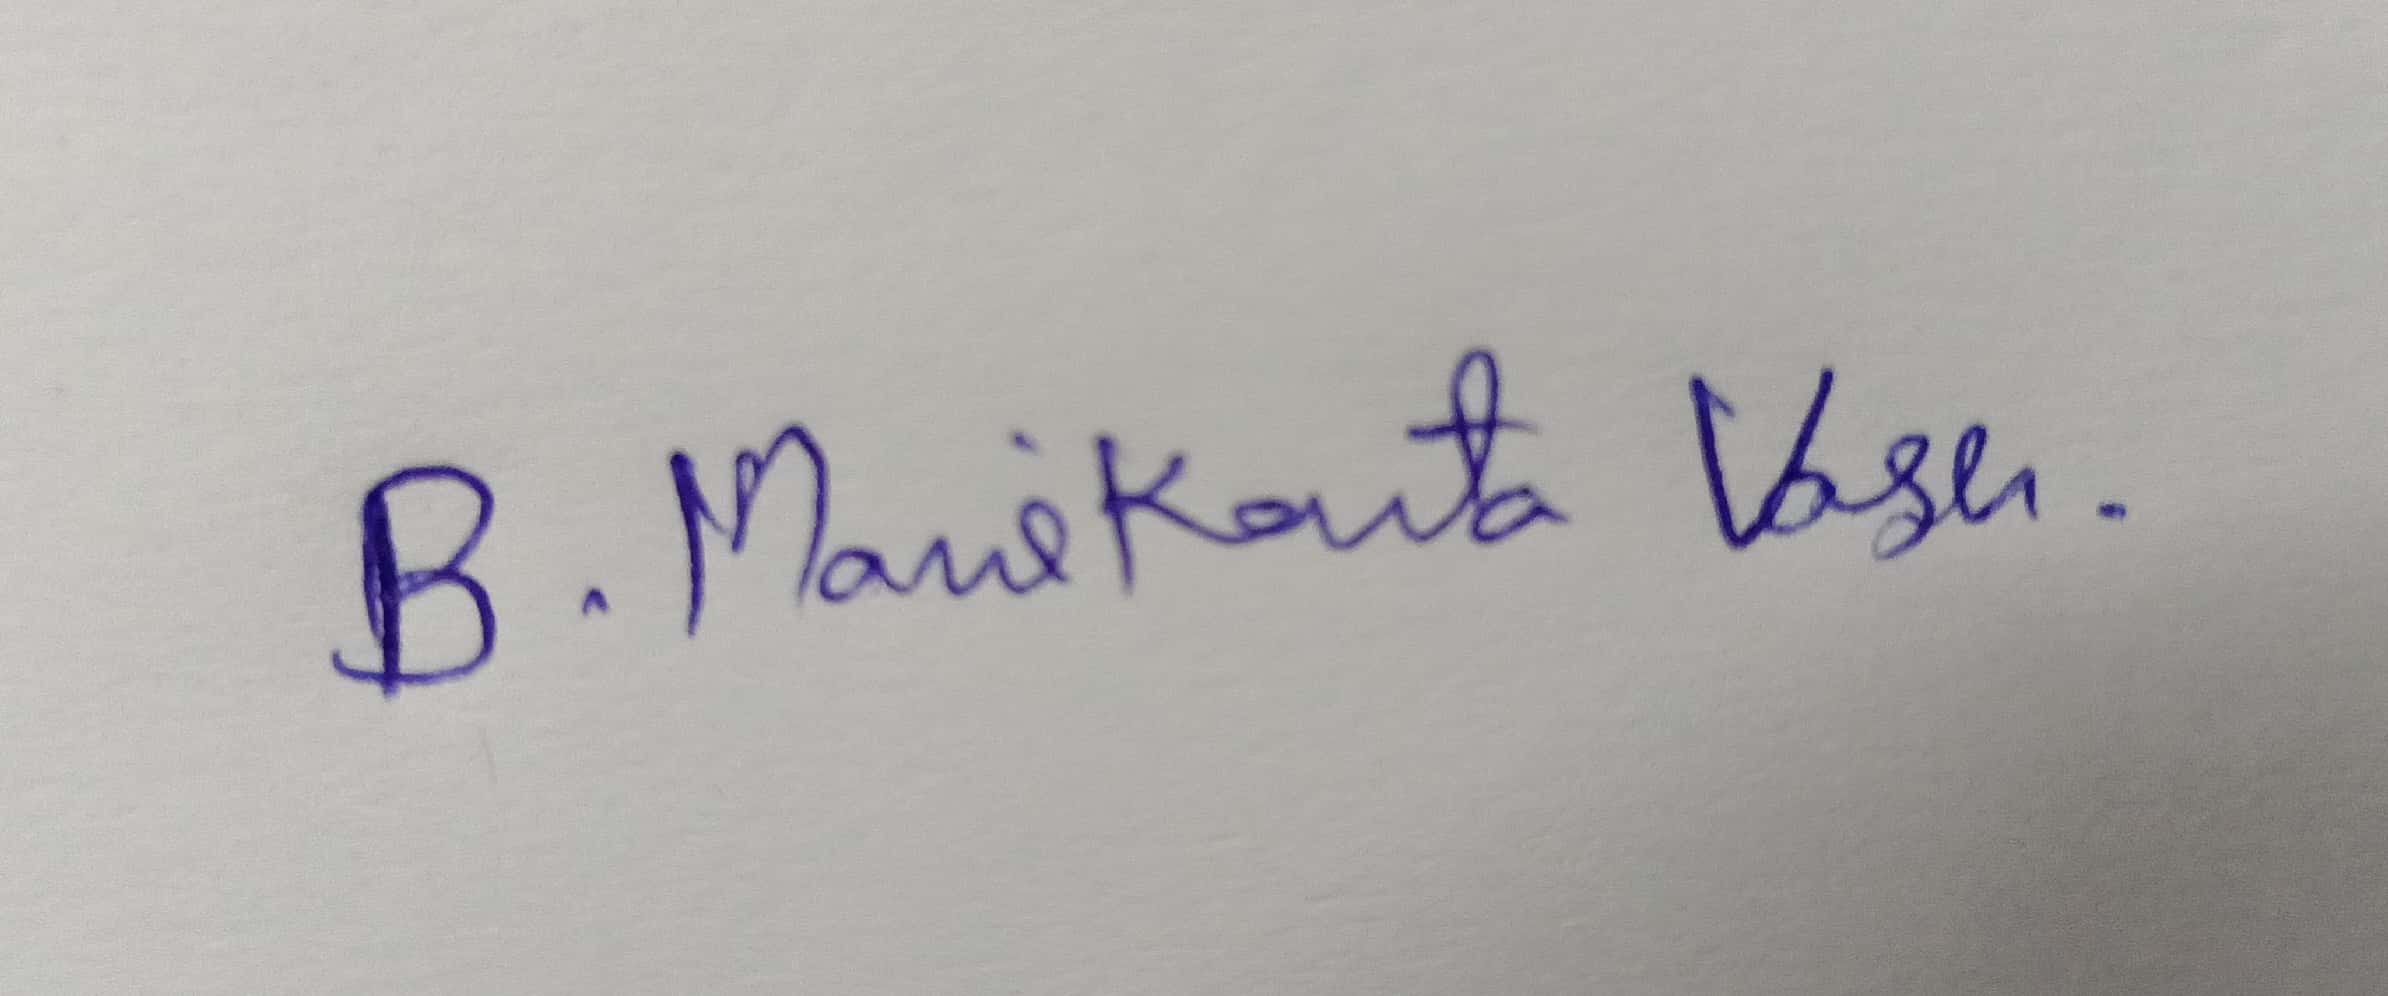 B. Manikanta Vasu.